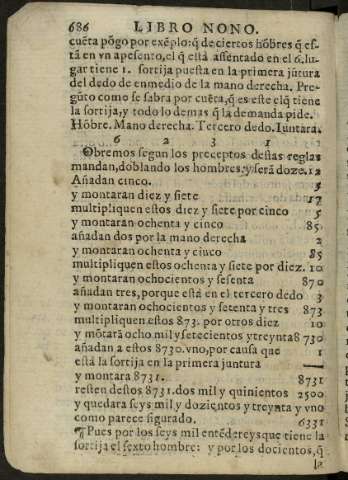 686 LIBRO NONO.
cuẽta põgo por exẽplo: q̃ de ciertos hõbres q̃ es-
tã en vn aposento, el q̃ està assentado en el 6. lu-
gar tiene 1. sortija puesta en la primera jũtura
del dedo de enmedio de la mano derecha. Pre-
gũto como se sabra por cuẽta, q̃ es este el q̃ tiene
la sortija, y todo lo demas q̃ la demanda pide.
Hõbre. Mano derecha. Tercero dedo. Iuntura.
6 2 3 1
Obremos segun los preceptos destas reglas
mandan, doblando los hombres: y serã doze. 12
Añadan cinco. 5
y montaran diez y siete 17
multipliquen estos diez y siete por cinco 5
y montaran ochenta y cinco 85
añadan dos por la mano derecha 2
y montaran ochenta y cinco 85
multipliquen estos ochenta y siete por diez. 10
y montaran ochocientos y sesenta 870
añadan tres, porque está en el tercero dedo 3
y montaran ochocientos y setenta y tres 873
multipliquen estos 873. por otros diez 10
y mõtarã ocho mil y setecientos y treynta 8730
añadan a estos 8730. vno, por causa que 1
està la sortija en la primera juntura
y montara 8731. 8731
resten destos 8731. dos mil y quinientos 2500
y quedara seys mil y dozientos y treynta y vno
como parece figurado. 6331
¶ Pues por los seys mil entẽdereys que tiene la
sortija el sexto hombre: y por los docientos, q̃
la